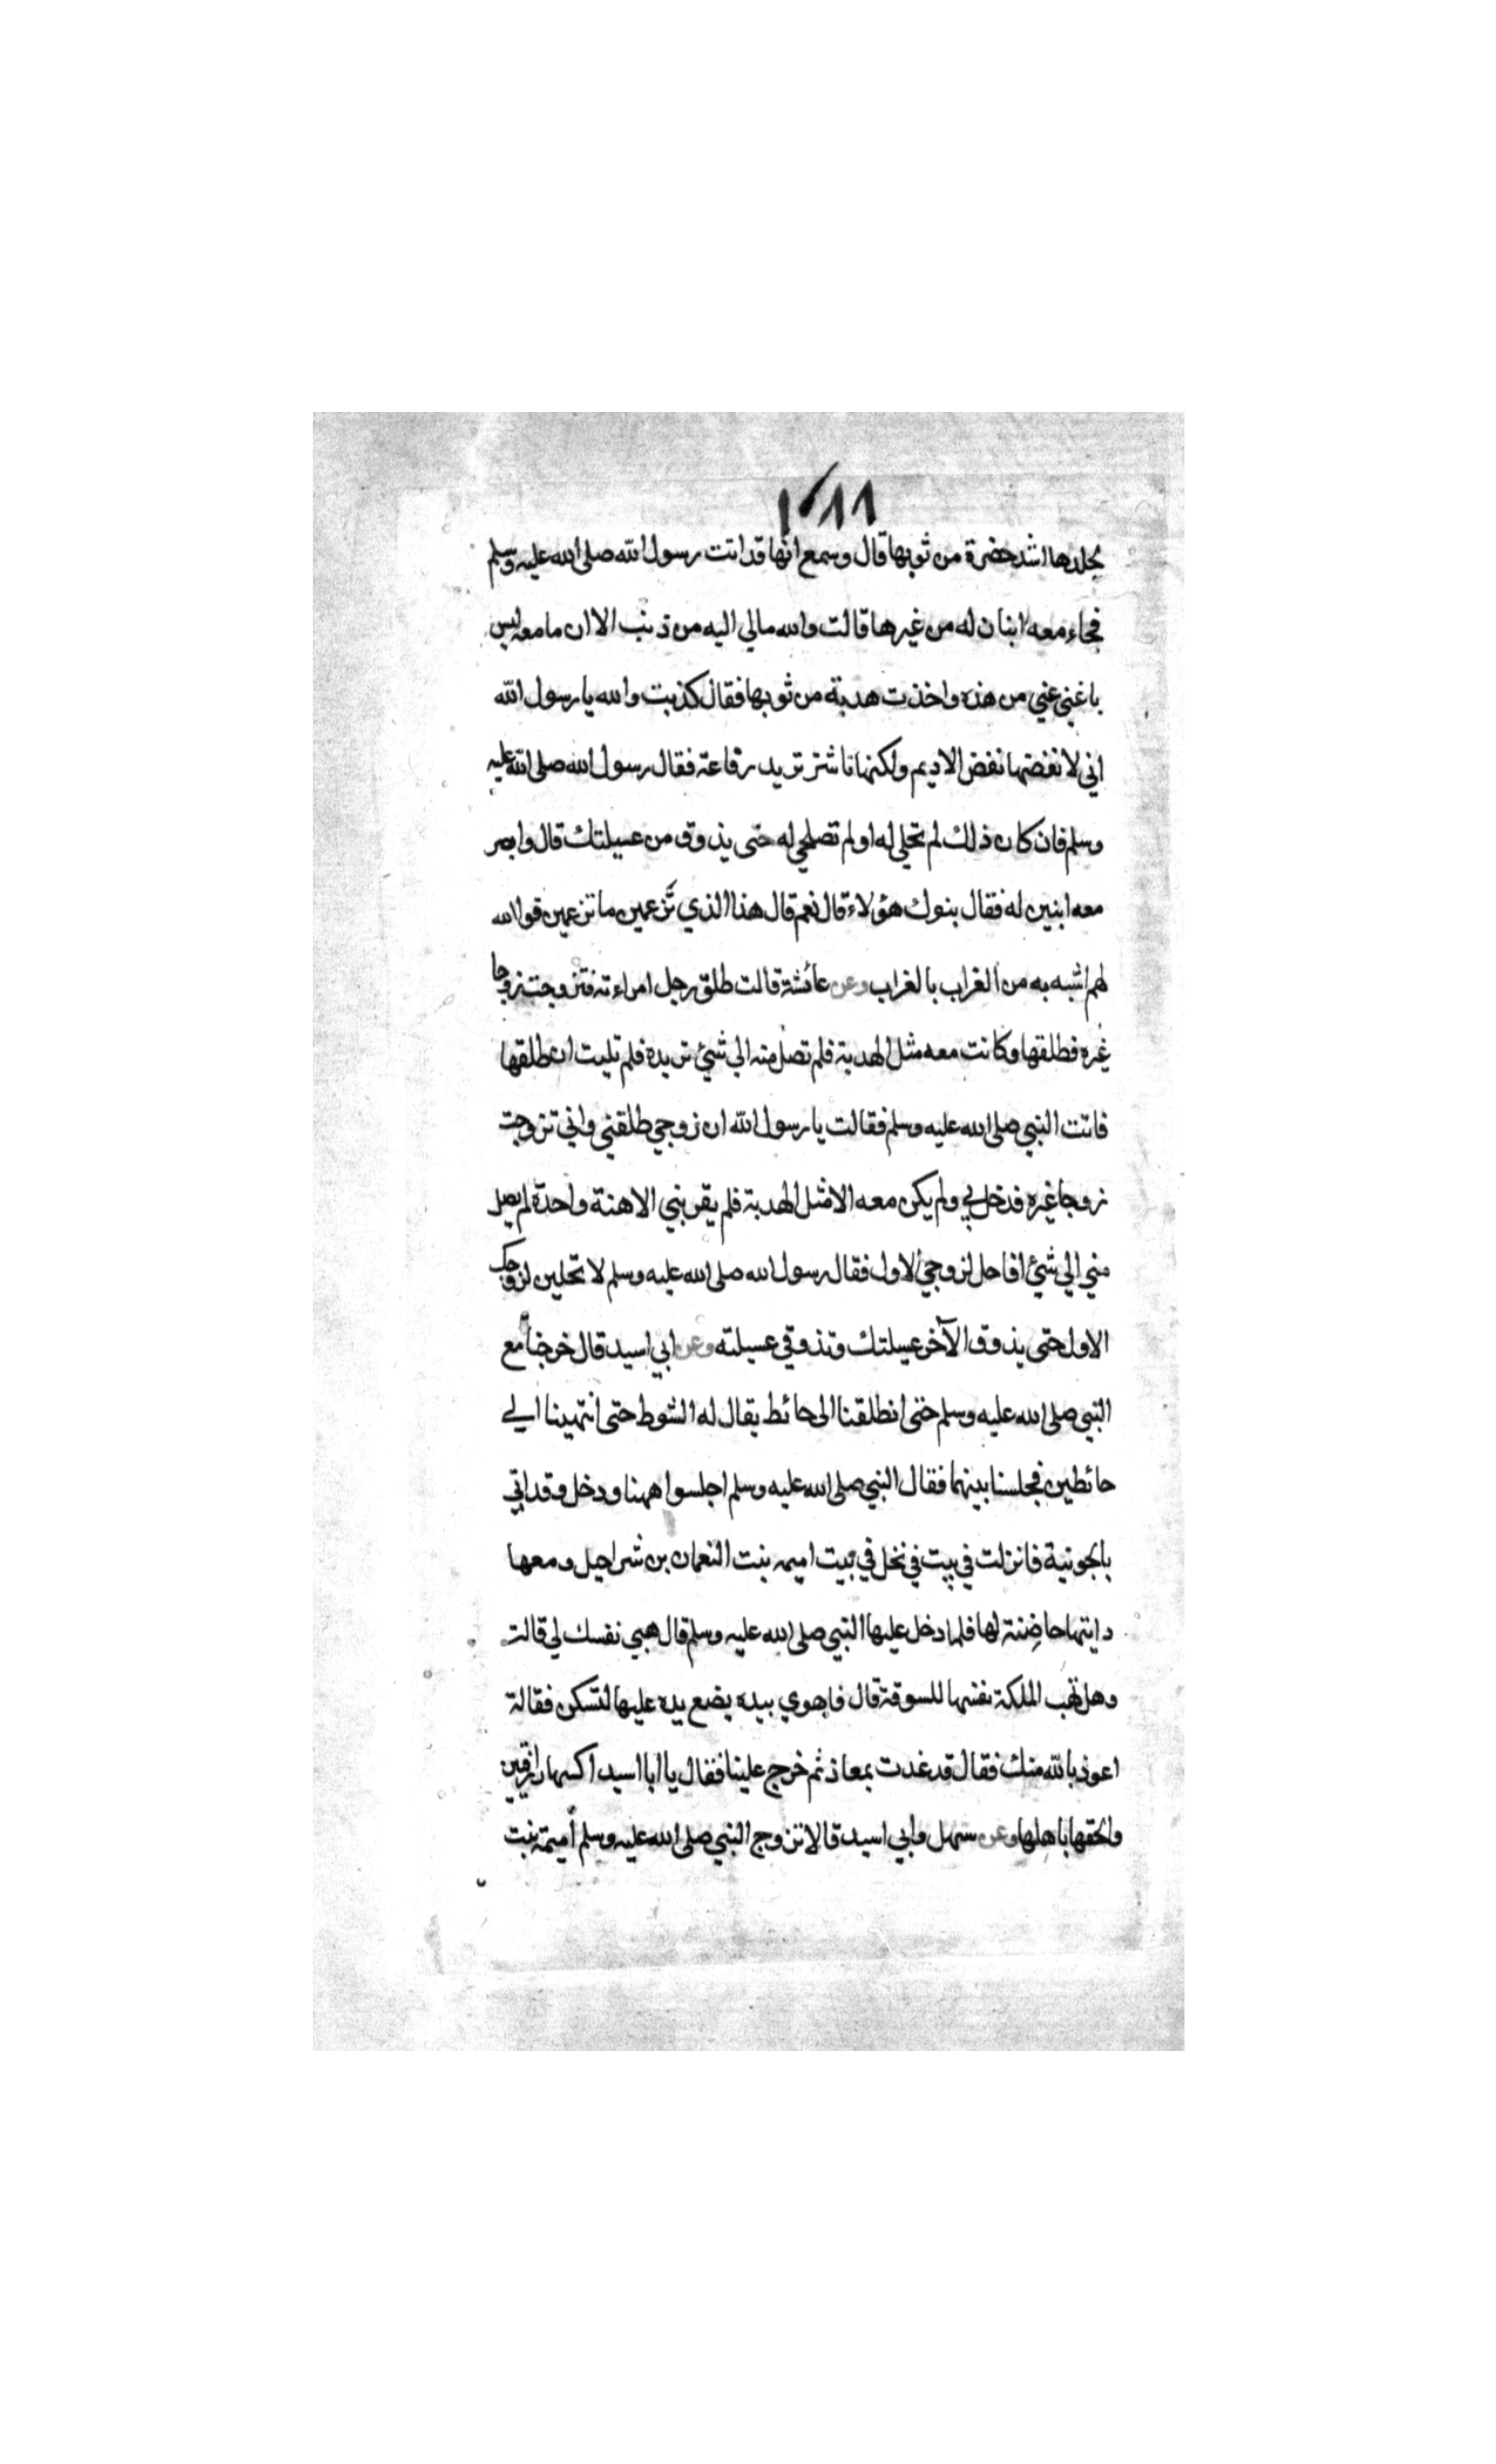 ١٨٨
لجلدها اشد خضرة من ثوبها قال وسمع انها قد اتت رسول الله صلى الله عليه وسلم
فجاء معه ابنان له من غيرها قالت والله مالي اليه من ذنب الا ان ما معه ليس
باغني عني من هذه واخذت هدبة من ثوبها فقال كذبت والله يا رسول الله
اني لانفضها نفض الاديم ولكنها ناشز تريد رفاعة فقال رسول الله صلى الله عليه
وسلم فان كان ذلك لم تحلي له او لم تصلحي له حتى يذوق من عسيلتك قال وابصر
معه ابنين له فقال بنوك هؤلاء قال نعم قال هذا الذي تزعمين ما تزعمين فوالله
لهم اشبه به من الغراب بالغراب وعن عائشة قالت طلق رجل امراءته فتزوجت زوجا
غيره فطلقها وكانت معه مثل الهدبة فلم تصل منه الي شئ تريده فلم تلبث ان طلقها
فاتت النبي صلى الله عليه وسلم فقالت يا رسول الله ان زوجي طلقني واني تزوجت
زوجا غيره فدخل بي ولم يكن معه الا مثل الهدبة فلم يقربني الا هنة واحدة لم يصل
مني الي شئ افاحل لزوجي الاول فقال رسول الله صلى الله عليه وسلم لا تحلين لزوجك
الاول حتى يذوق الآخر عسيلتك وتذوقي عسيلته وعن ابي اسيد قال خرجنا مع
النبي صلى الله عليه وسلم حتى انطلقنا الى حائط يقال له الشوط حتى انتهينا الي
حائطين فجلسنا بينهما فقال النبي صلى الله عليه وسلم اجلسوا ههنا ودخل وقد اتي
بالجونية فانزلت في بيت في نخل في بيت اميمه بنت النعمان بن شراحيل ومعها
دايتها حاضنة لها فلما دخل عليها النبي صلى الله عليه وسلم قال هبي نفسك لي قالت
وهل تهب الملكة نفسها للسوقة قال فاهوي بيده يضع يده عليها لتسكن فقالة
اعوذ بالله منك فقال قد عذت بمعاذ ثم خرج علينا فقال يا ابا اسيد اكسها رازقين
والحقها باهلها وعن سهل وابي اسيد قالا تزوج النبي صلى الله عليه وسلم أميمة بنت